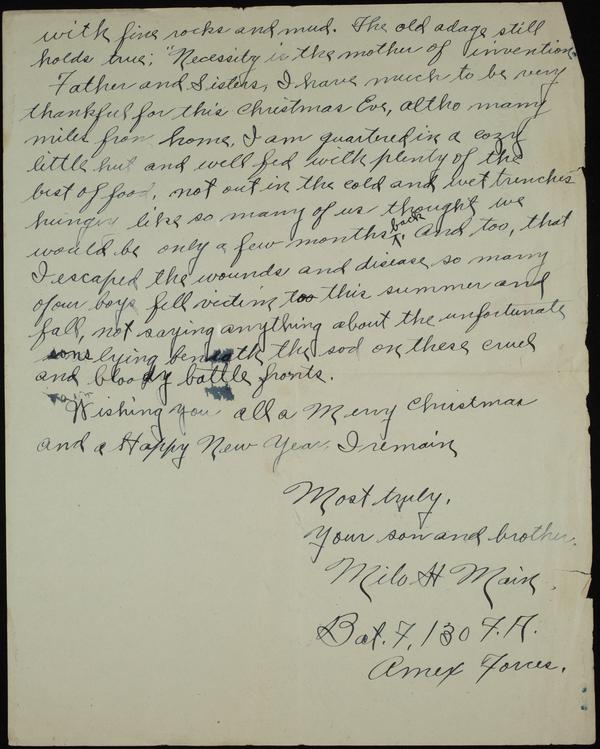 with fine rocks and mud. The old adage still
holds true; "Necessity is the mother of invention.
Father and Sisters, I have much to be very
thankful for this Christmas Eve, altho many
miles from home. I am quartered in a cozy
little hut and well fed with plenty of the
best of food, not out in the cold and wet trenches
hungry like so many of us thought we
would be only a few months back. And too, that
I escaped the wounds and disease so many
of our boys fell victim too this summer and
fall, not saying anything about the unfortunate
sons lying beneath the sod on these cruel
and bloody battle fronts.
Wishing you all a Merry Christmas
and a Happy New Year, I remain
Most truly,
Your son and brother,
Milo H Main,
Bat. F, 130 F.A.
Amex Forces.